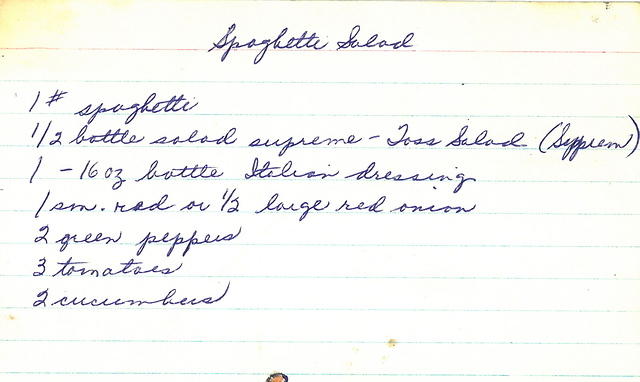 Spaghetti Salad
1# spaghetti
1/2 bottle salad supreme - Toss Salad (Supprem)
1 - 16 oz bottle Italian dressing
1 sm. red or 1/2 large red onion
2 green peppers
3 tomatoes
2 cucumbers